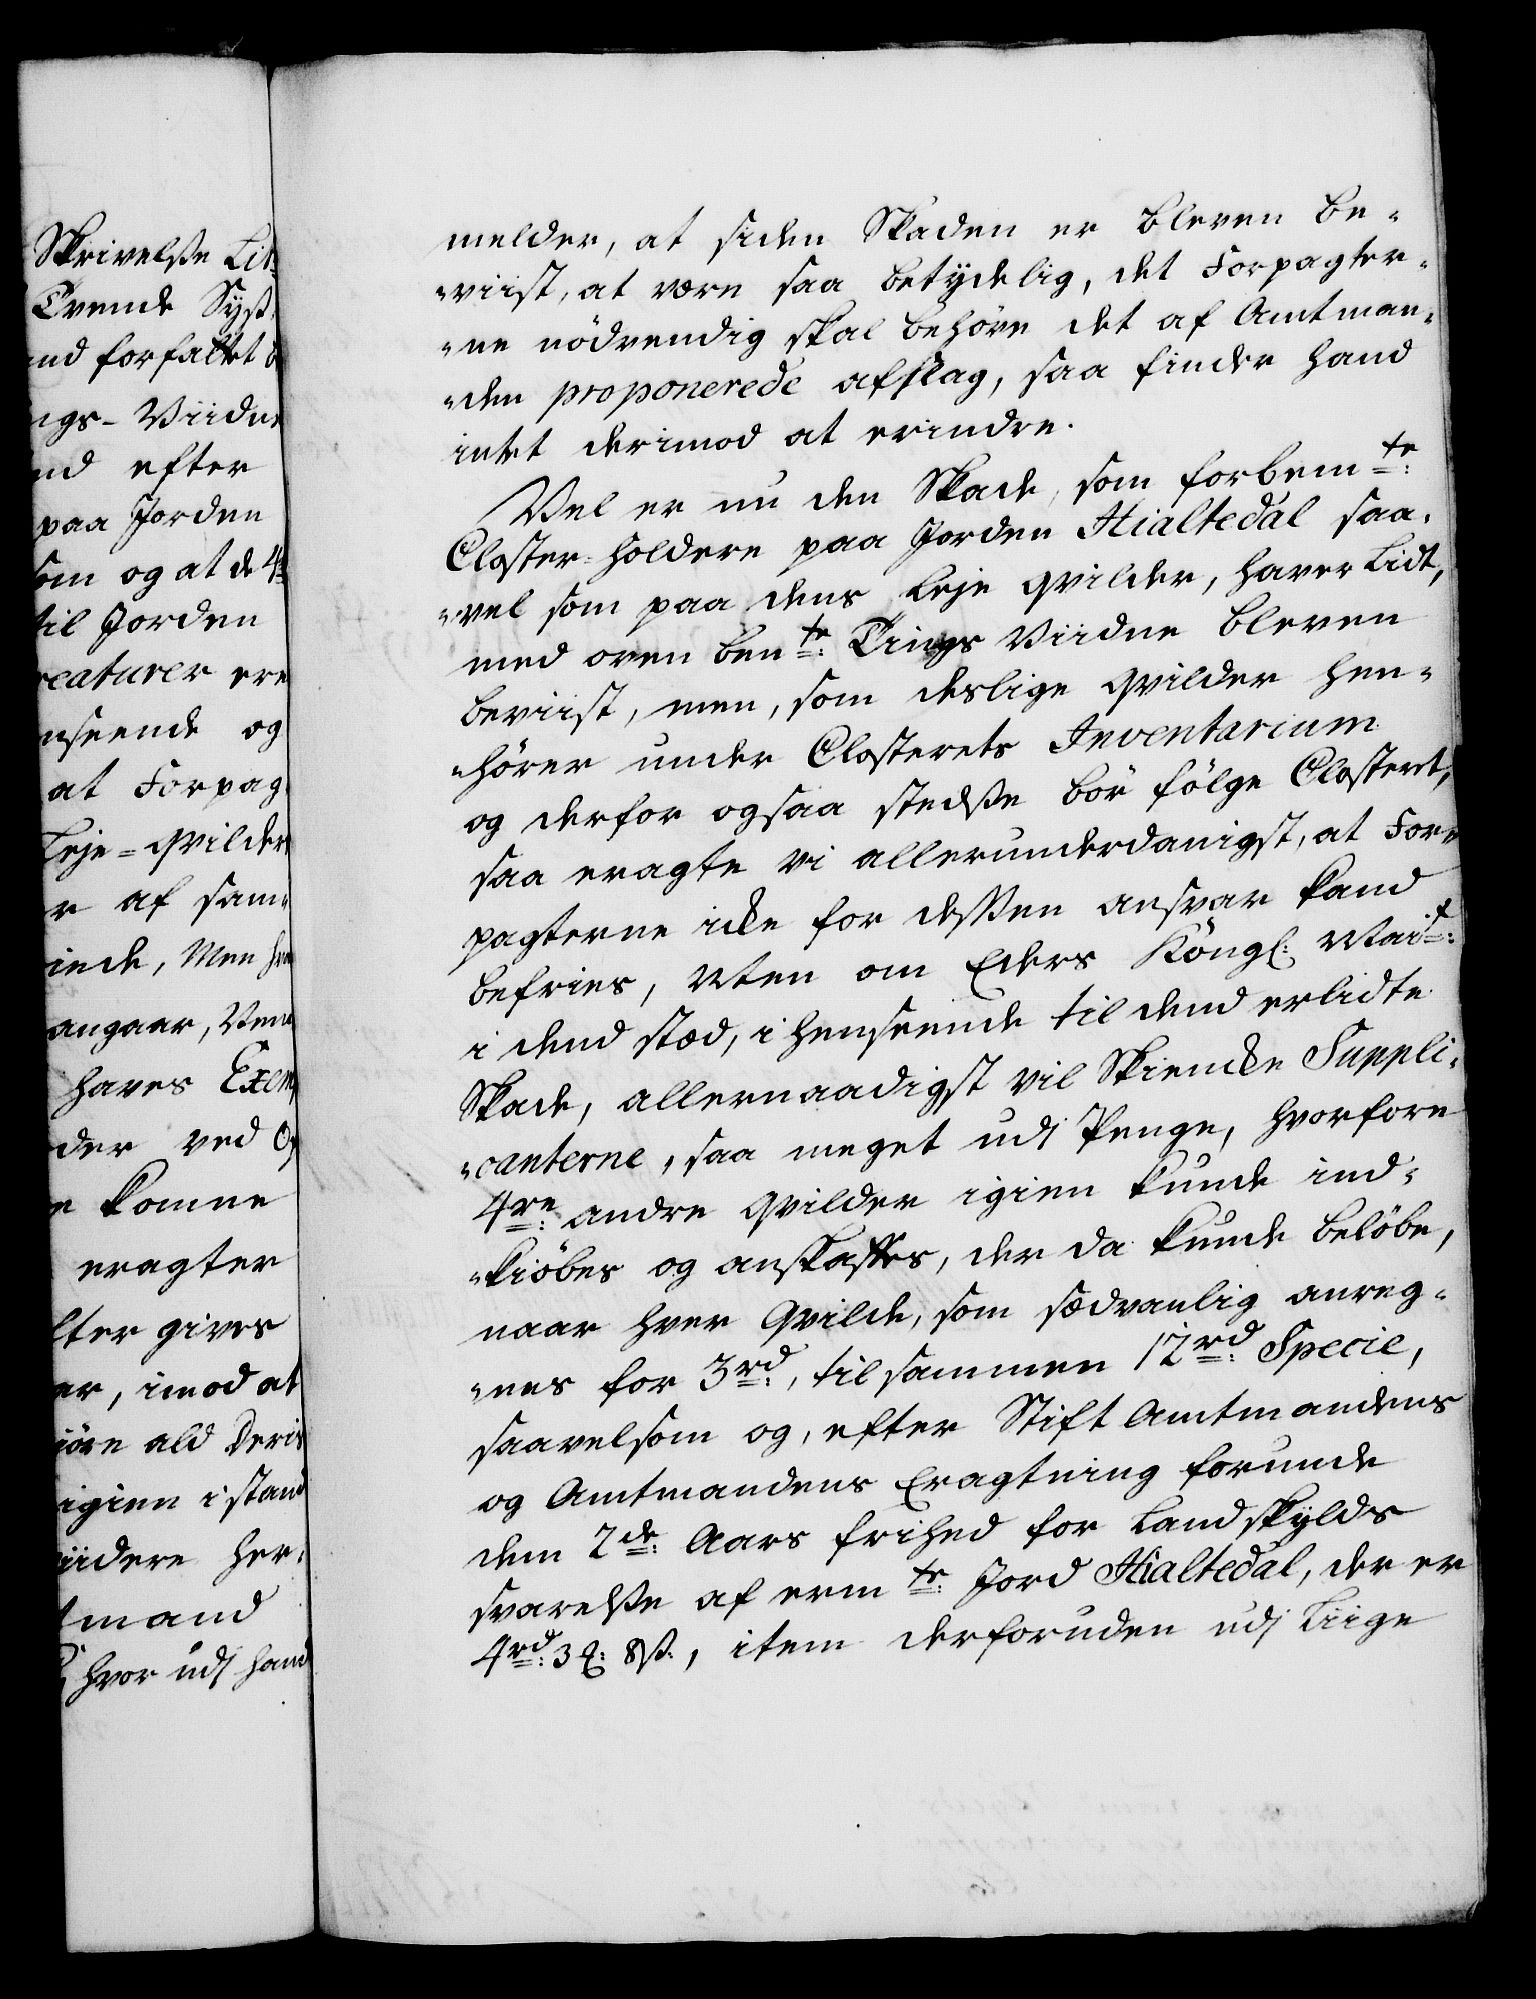 Skrivelße Lit:
Tvende Syß
nd forfattet
ngs-Viidne
nd efter
paa Jorden
som og at de 4
til Jorden
reaturer ere
nseende og
at Forpag
Leje=qvilder
r af sam
inde, Men
angaar, Vene
haves Exem
der ved
e komne
eragter
lter gives
er, imod at
iøre ald Deris
igien i stand
iidere her
tmand
hvor udj hand
melder, at siden Skaden er bleven be-
"viist, at være saa betydelig, det Forpagter-
"ne nödvendig skal behöve det af Amtman-
"den proponerede afslag, saa finder hand
intet derimod at erindre.
Vel er nu den Skade, som forbemte:
Closter-holdere paa Jorden Hialtedal saa-
"vel som paa dens Leje qvilder, haver Lidt,
med oven bente: Tings Viidne bleven
beviist, men, som deslige qvilder hen-
"hörer under Closterets Inventarium
og derfor ogsaa stedße bör fölge Closteret,
saa eragte vi allerunderdanigst, at For-
pagterne icke for deßen ansvar kand
befries, Uten om Eders Köngl: Mait:
i dend stæd, i henseende til dend erlidte
Skade, allernaadigst vil Skiencke Suppli-
"canterne, saa meget udj Penge, hvorfore
4re: andre qvilder igien kunde ind-
"kiöbes og anskaffes, der da kunde belöbe,
naar hver Qvilde, som sædvanlig anreg-
"nes for 3rd:, tilsammen 12rd: Specie,
saavelsom og, efter Stift Amtmandens
og Amtmandens Eragtning forunde
dem 2de: Aars frihed for Landskylds
svarelße af ermte: Jord Hialtedal, der er
4rd: 3 : 8ß:, item derforuden udj Liige